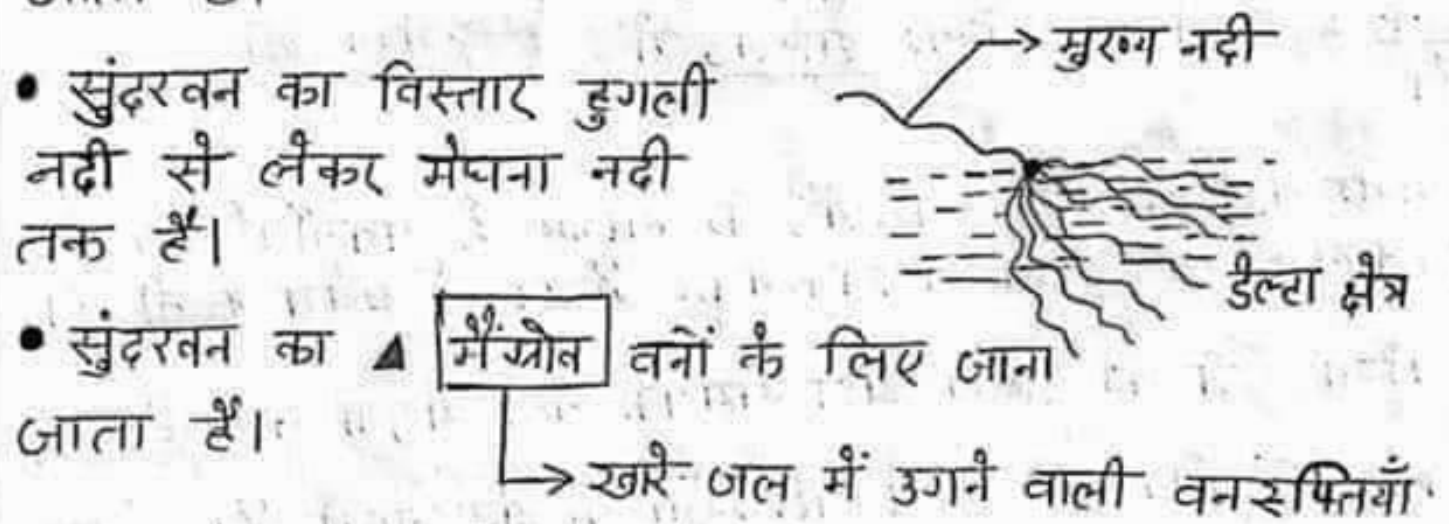 • सुंदरवन का विस्तार हुगली
नदी से लेकर मेघना नदी
तक है।
→ मुख्य नदी
डेल्टा क्षेत्र
• सुंदरवन का ▲ मैंग्रोव वनों के लिए जाना
जाता है।
→ खारे जल में उगने वाली वनस्पतियाँ